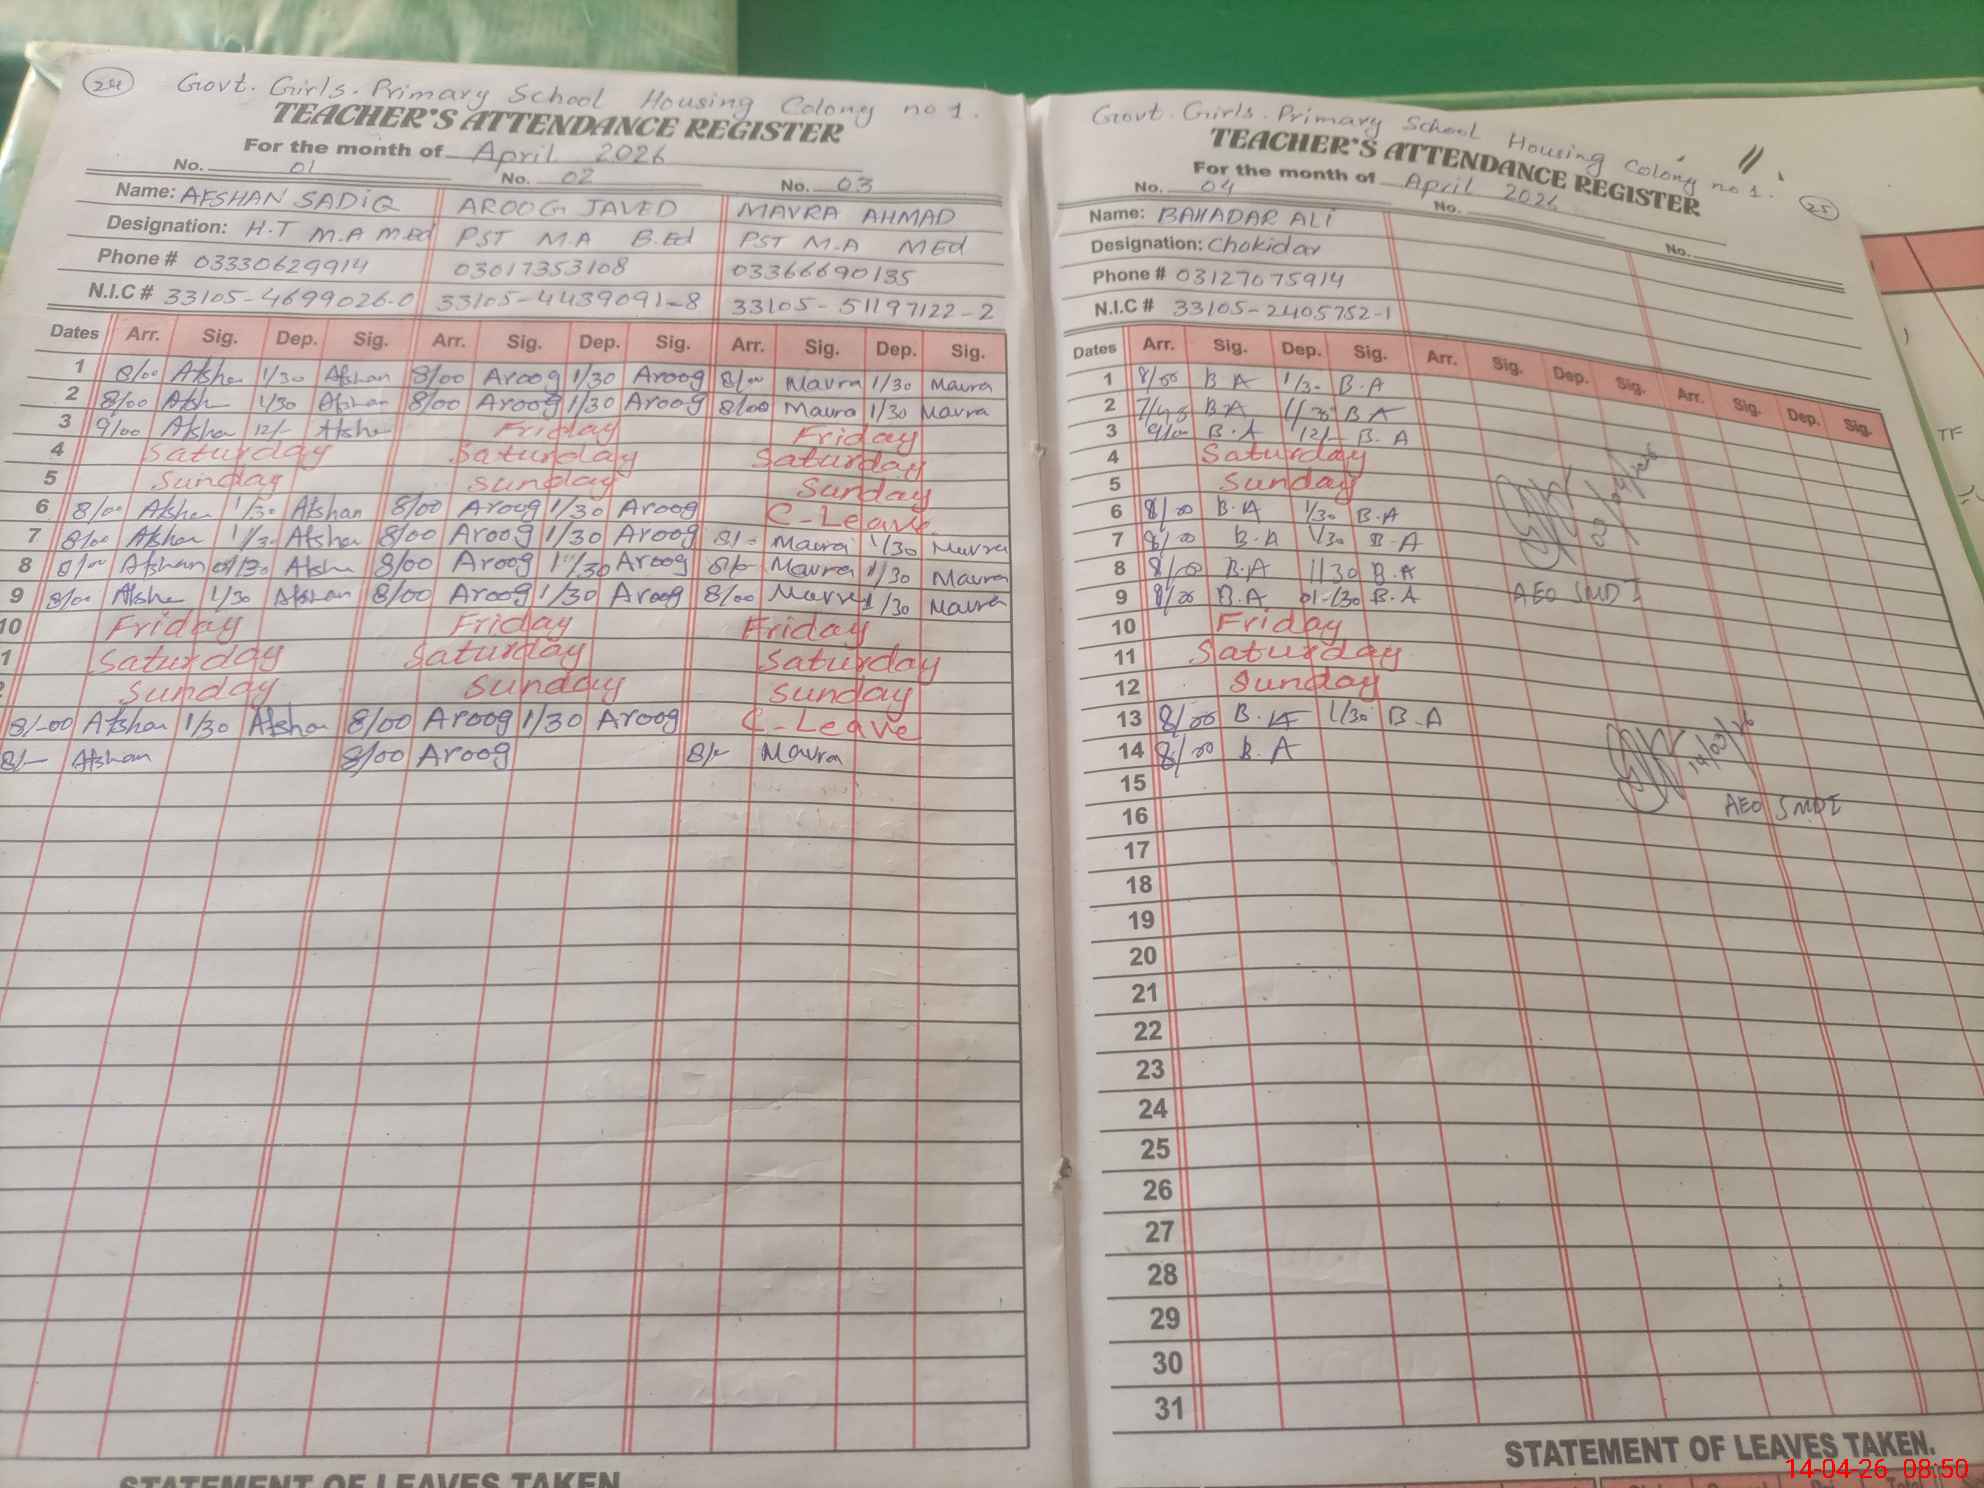 24
Govt. Girls. Primary School Housing Colony no 1.
TEACHER'S ATTENDANCE REGISTER
For the month of April 2026
No. 01 No. 02 No. 03
Name: AFSHAN SADIQ AROOG JAVED MAVRA AHMAD
Designation: H.T M.A M.Ed PST M.A B.Ed PST M.A MEd
Phone # 03330629914 03017353108 03366690135
N.I.C # 33105-4699026-0 33105-4439091-8 33105-51197122-2
Dates Arr. Sig. Dep. Sig. Arr. Sig. Dep. Sig. Arr. Sig. Dep. Sig.
1 8/00 Afshan 1/30 Afshan 8/00 Aroog 1/30 Aroog 8/00 Mavra 1/30 Mavra
2 8/00 Afshan 1/30 Afshan 8/00 Aroog 1/30 Aroog 8/00 Mavra 1/30 Mavra
3 9/00 Afshan 12/- Afshan Friday Friday
4 Saturday Saturday Saturday
5 Sunday Sunday Sunday
6 8/00 Afshan 1/30 Afshan 8/00 Aroog 1/30 Aroog C-Leave
7 8/00 Afshan 1/30 Afshan 8/00 Aroog 1/30 Aroog 8/- Mavra 1/30 Mavra
8 8/00 Afshan 01/30 Afshan 8/00 Aroog 1/30 Aroog 8/- Mavra 1/30 Mavra
9 8/00 Afshan 1/30 Afshan 8/00 Aroog 1/30 Aroog 8/00 Mavra 1/30 Mavra
10 Friday Friday Friday
1 Saturday Saturday Saturday
Sunday Sunday Sunday
8/-00 Afshan 1/30 Afshan 8/00 Aroog 1/30 Aroog C-Leave
8/- Afshan 8/00 Aroog 8/- Mavra
STATEMENT OF LEAVES TAKEN
Govt. Girls. Primary School Housing Colony no 1.
25
TEACHER'S ATTENDANCE REGISTER
For the month of April 2026
No. 04 No. No.
Name: BAHADAR ALI
Designation: Chokidar
Phone # 03127075914
N.I.C # 33105-2405752-1
Dates Arr. Sig. Dep. Sig. Arr. Sig. Dep. Sig. Arr. Sig. Dep. Sig.
1 8/00 B.A 1/30 B.A
2 7/45 B.A 1/30 B.A
3 9/00 B.A 12/- B.A
4 Saturday
5 Sunday
6 8/00 B.A 1/30 B.A
7 8/00 B.A 1/30 B.A
8 8/00 B.A 1/30 B.A
9 8/00 B.A 01-/30 B.A AEO SMDI
10 Friday
11 Saturday
12 Sunday
13 8/00 B.A 1/30 B.A
14 8/00 B.A
15
16 AEO SMDI
17
18
19
20
21
22
23
24
25
26
27
28
29
30
31
STATEMENT OF LEAVES TAKEN.
TF
14-04-26 08:50